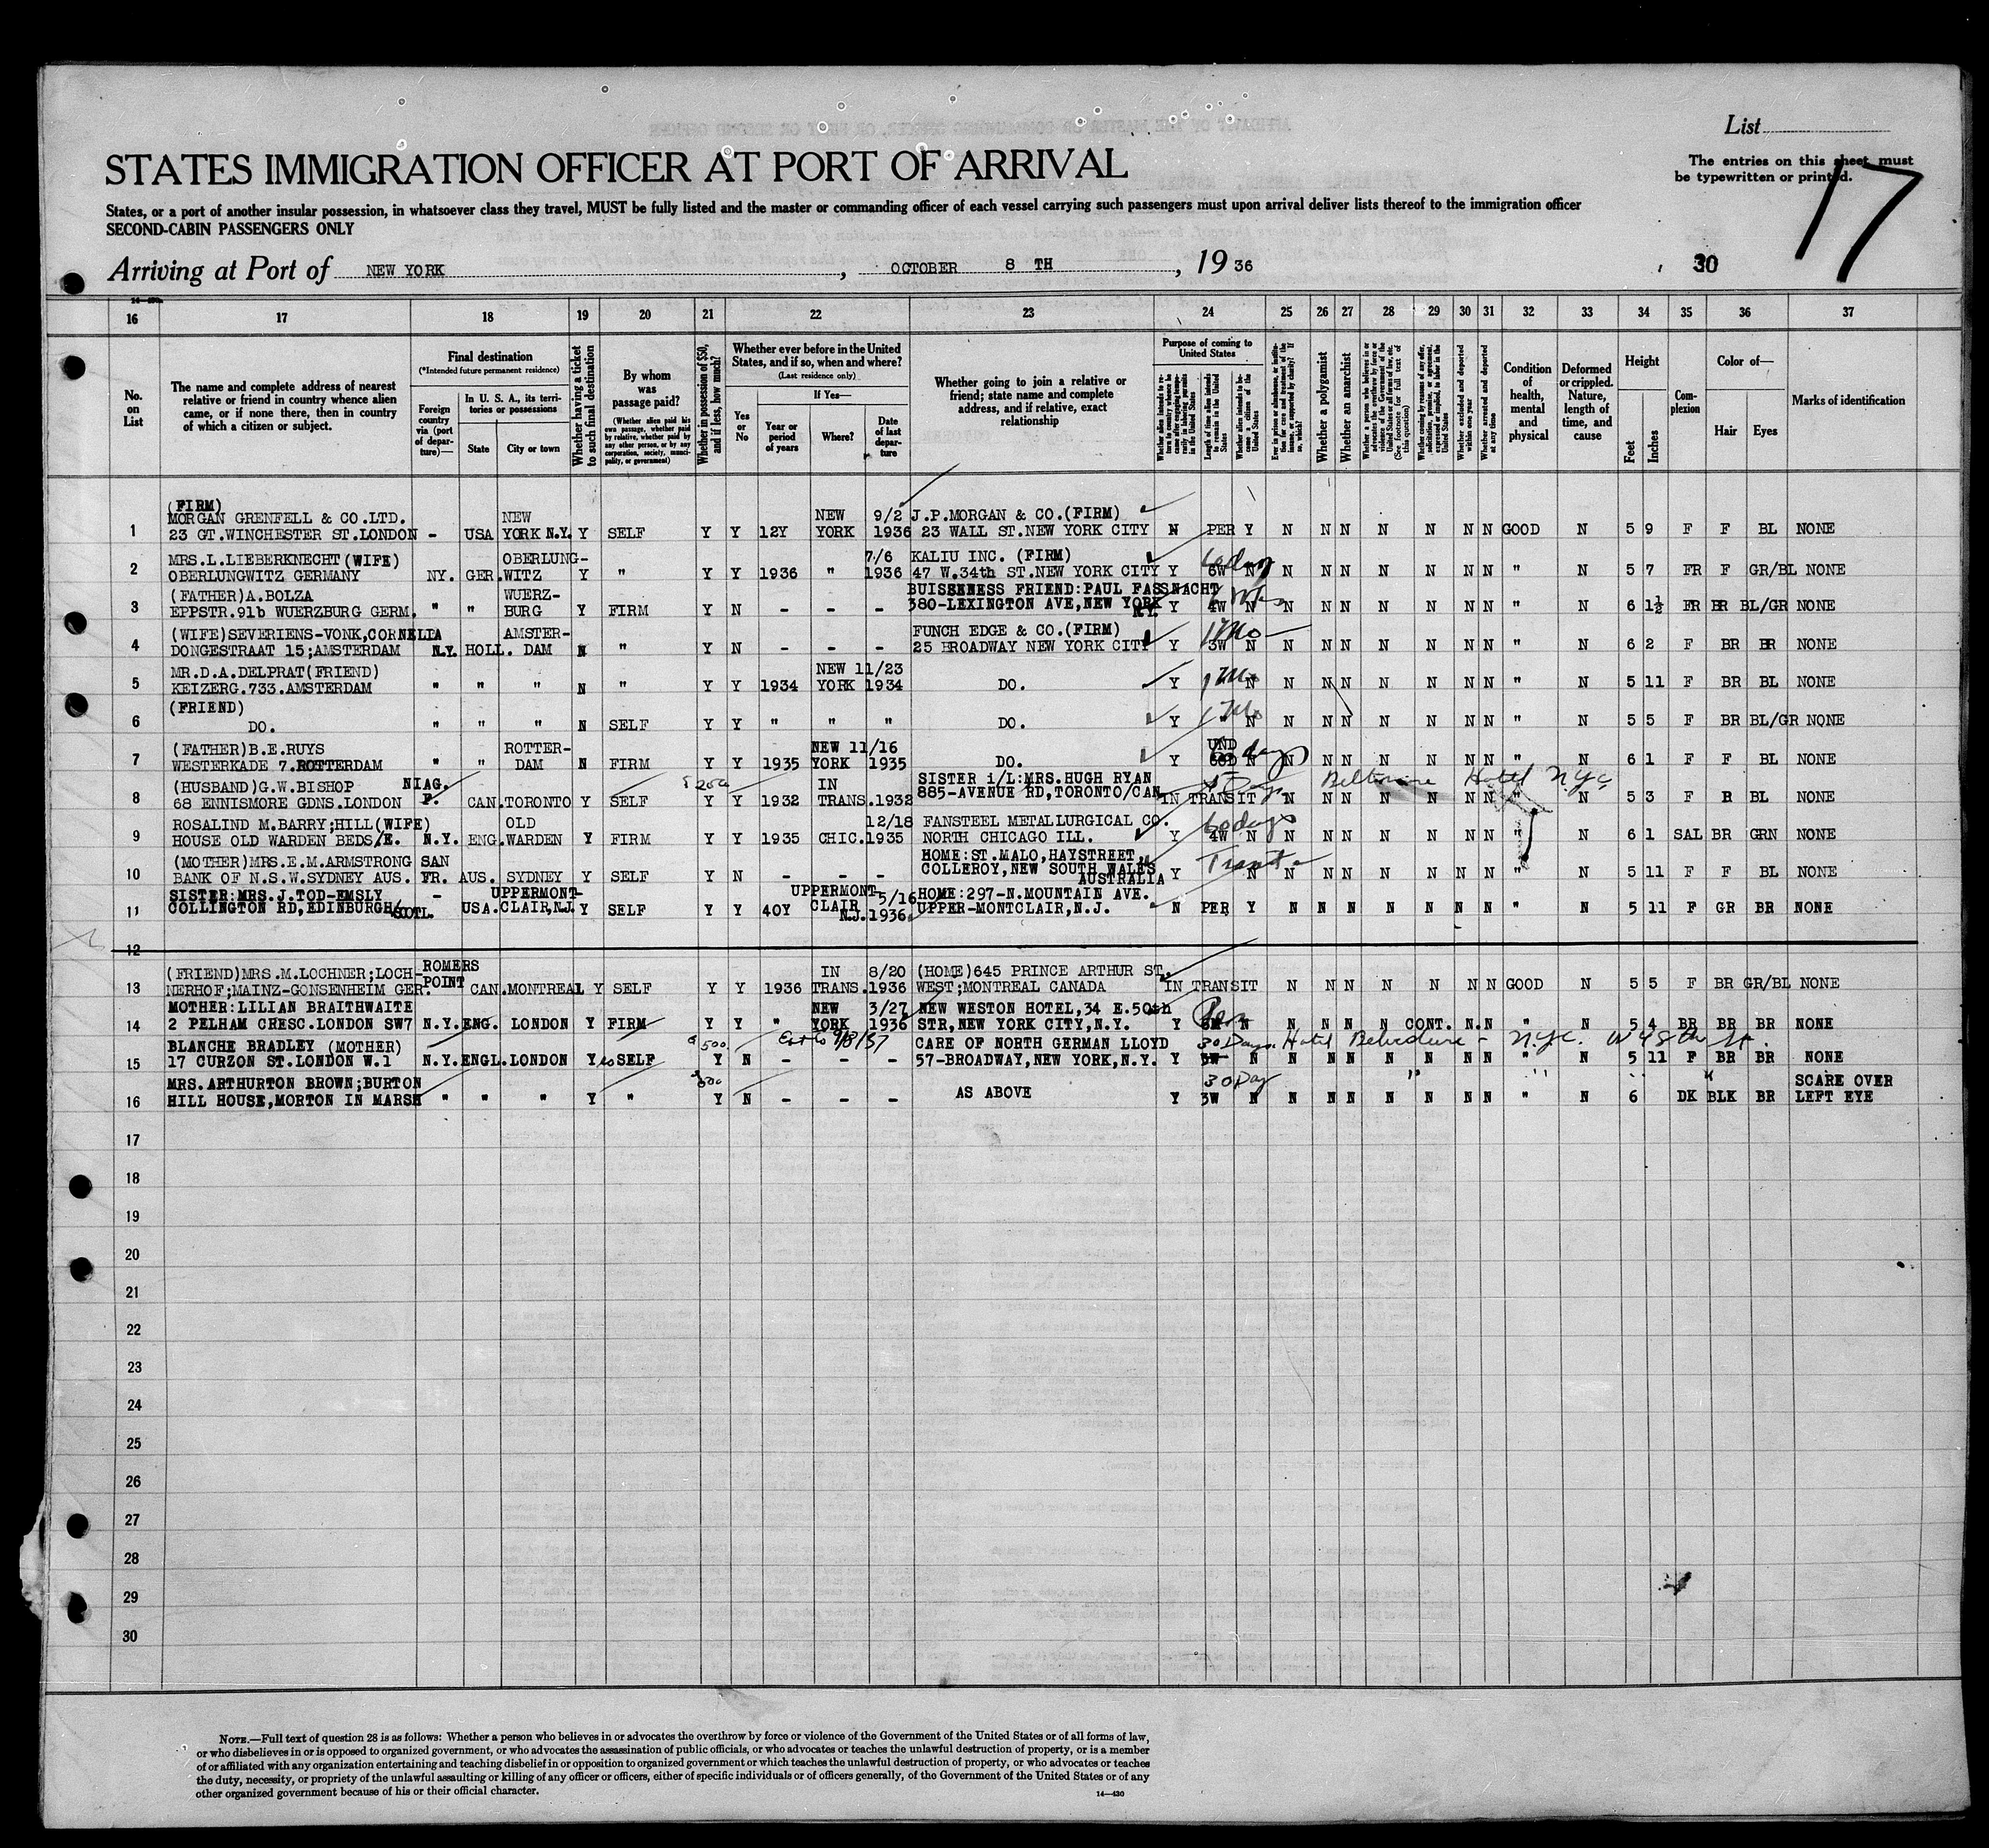 List
The entries on this sheet must
be typewritten or printed.
17
STATES IMMIGRATION OFFICER AT PORT OF ARRIVAL
States, or a port of another insular possession, in whatsoever class they travel, MUST be fully listed and the master or commanding officer of each vessel carrying such passengers must upon arrival deliver lists thereof to the immigration officer
SECOND-CABIN PASSENGERS ONLY
Arriving at Port of NEW YORK, OCTOBER 8 TH, 1936
30
16 17 18 19 20 21 22 23 24 25 26 27 28 29 30 31 32 33 34 35 36 37
No. on List
The name and complete address of nearest relative or friend in country whence alien came, or if none there, then in country of which a citizen or subject.
Final destination
(*Intended future permanent residence)
Foreign country via (port of departure)—
In U. S. A., its territories or possessions
State
City or town
Whether having a ticket to such final destination
By whom was passage paid?
(Whether alien paid his own passage, whether paid by relative, whether paid by any other person, or by any corporation, society, municipality, or government)
Whether in possession of $50, and if less, how much?
Whether ever before in the United States, and if so, when and where?
(Last residence only)
Yes or No
If Yes—
Year or period of years
Where?
Date of last departure
Whether going to join a relative or friend; state name and complete address, and if relative, exact relationship
Purpose of coming to United States
Length of time alien intends to remain in the United States
Whether alien intends to become a citizen of the United States
Whether a polygamist
Whether an anarchist
(See footnote for full text of this question)
Whether excluded and deported within one year
Whether arrested and deported at any time
Condition of health, mental and physical
Deformed or crippled. Nature, length of time, and cause
Height
Feet
Inches
Complexion
Color of—
Hair
Eyes
Marks of identification
(FIRM) NEW NEW 9/2 J.P.MORGAN & CO.(FIRM)
MORGAN GRENFELL & CO.LTD.
1 23 GT.WINCHESTER ST.LONDON - USA YORK N.Y. Y SELF Y Y 12Y YORK 1936 23 WALL ST.NEW YORK CITY N PER Y N N N N N N N GOOD N 5 9 F F BL NONE
MRS.L.LIEBERKNECHT(WIFE) OBERLUNG- 7/6 KALIU INC. (FIRM)
2 OBERLUNGWITZ GERMANY NY. GER. WITZ Y " Y Y 1936 " 1936 47 W.34th ST.NEW YORK CITY Y 6W N N N N N N N N " N 5 7 FR F GR/BL NONE
(FATHER)A.BOLZA WUERZ- BUISENESS FRIEND:PAUL FASSNACHT
3 EPPSTR.91b WUERZBURG GERM. " " BURG Y FIRM Y N - - - 380-LEXINGTON AVE,NEW YORK N.Y. Y 4W N N N N N N N N " N 6 1½ FR BR BL/GR NONE
(WIFE)SEVERIENS-VONK,CORNELIA AMSTER- FUNCH EDGE & CO.(FIRM) 1 Mo
4 DONGESTRAAT 15;AMSTERDAM N.Y. HOLL. DAM N " Y N - - - 25 BROADWAY NEW YORK CITY Y 3W N N N N N N N N " N 6 2 F BR BR NONE
MR.D.A.DELPRAT(FRIEND) NEW 11/23
5 KEIZERG.733.AMSTERDAM " " " N " Y Y 1934 YORK 1934 DO. Y 1 Mo N N N N N N N N " N 5 11 F BR BL NONE
(FRIEND)
6 DO. " " " N SELF Y Y " " " DO. Y " 1 Mo N N N N N N N " N 5 5 F BR BL/GR NONE
(FATHER)B.E.RUYS ROTTER- NEW 11/16 UND
7 WESTERKADE 7.ROTTERDAM " " DAM N FIRM Y Y 1935 YORK 1935 DO. Y 60D days N N N N N N N " N 6 1 F F BL NONE
(HUSBAND)G.W.BISHOP NIAG. $200 IN SISTER i/L:MRS.HUGH RYAN Days Biltmore Hotel N.Y.C.
8 68 ENNISMORE GDNS.LONDON F. CAN. TORONTO Y SELF Y Y 1932 TRANS. 1932 885-AVENUE RD,TORONTO/CAN. IN TRANSIT N N N N N N N " N 5 3 F R BL NONE
ROSALIND M.BARRY;HILL(WIFE) OLD 12/18 FANSTEEL METALLURGICAL CO. 60 days
9 HOUSE OLD WARDEN BEDS/E. N.Y. ENG. WARDEN Y FIRM Y Y 1935 CHIC. 1935 NORTH CHICAGO ILL. Y 4W N N N N N N N N " N 6 1 SAL BR GRN NONE
(MOTHER)MRS.E.M.ARMSTRONG SAN HOME:ST.MALO,HAYSTREET, Transit
10 BANK OF N.S.W.SYDNEY AUS. FR. AUS. SYDNEY Y SELF Y N - - - COLLEROY,NEW SOUTH WALES AUSTRALIA Y N N N N N N N N " N 5 11 F F BL NONE
SISTER:MRS.J.TOD-EMSLY - UPPERMONT- UPPERMONT- 5/16 HOME:297-N.MOUNTAIN AVE.
11 COLLINGTON RD,EDINBURGH/SCOTL. USA. CLAIR,N.J. Y SELF Y Y 40Y CLAIR N.J. 1936 UPPER-MONTCLAIR,N.J. N PER Y N N N N N N N " N 5 11 F GR BR NONE
12
(FRIEND)MRS.M.LOCHNER;LOCH- ROMERS IN 8/20 (HOME)645 PRINCE ARTHUR ST.
13 NERHOF;MAINZ-GONSENHEIM GER. POINT CAN. MONTREAL Y SELF Y Y 1936 TRANS. 1936 WEST;MONTREAL CANADA IN TRANSIT N N N N N N N GOOD N 5 5 F BR GR/BL NONE
MOTHER:LILIAN BRAITHWAITE NEW 3/27 NEW WESTON HOTEL,34 E.50th
14 2 PELHAM CRESC.LONDON SW7 N.Y. ENG. LONDON Y FIRM Y Y " YORK 1936 STR,NEW YORK CITY,N.Y. Y N N N N N CONT. N N " N 5 4 BR BR BR NONE
BLANCHE BRADLEY (MOTHER) $500. Ext to 9/8/37 CARE OF NORTH GERMAN LLOYD 30 Days. Hotel Belvedere - N.Y.C. W 48th St.
15 17 CURZON ST.LONDON W.1 N.Y. ENGL. LONDON Y SELF Y N - - - 57-BROADWAY,NEW YORK,N.Y. Y 3W N N N N N N N N " N 5 11 F BR BR NONE
MRS.ARTHURTON BROWN;BURTON AS ABOVE 30 Day " " " " SCARE OVER
16 HILL HOUSE,MORTON IN MARSH " " " Y " Y N - - - Y 3W N N N N N N N N " N 6 DK BLK BR LEFT EYE
17
18
19
20
21
22
23
24
25
26
27
28
29
30
NOTE.—Full text of question 28 is as follows: Whether a person who believes in or advocates the overthrow by force or violence of the Government of the United States or of all forms of law,
or who disbelieves in or is opposed to organized government, or who advocates the assassination of public officials, or who advocates or teaches the unlawful destruction of property, or is a member
of or affiliated with any organization entertaining and teaching disbelief in or opposition to organized government or which teaches the unlawful destruction of property, or who advocates or teaches
the duty, necessity, or propriety of the unlawful assaulting or killing of any officer or officers, either of specific individuals or of officers generally, of the Government of the United States or of any
other organized government because of his or their official character.
14—430